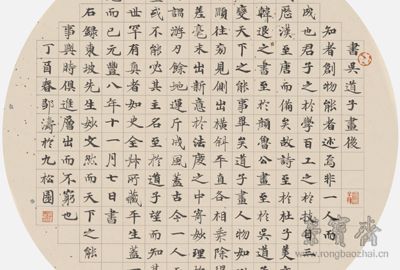 書吳道子畫後
知者創物能者述焉非一人而
成也君子之於學百工之於技自三
歷漢至唐而備矣故詩至於杜子美文
韓退之書至於顏魯公畫至於吳道子
變天下之能事畢矣道子畫人物如以
順往旁見側出橫斜平直各相乘除得
差毫末出新意於法度之中寄妙理於
謂游刃餘地運斤成風蓋古今一人
或不能必其主名至於道子望而知其
世罕有真者如史全叔所藏平生蓋一
見而已元豐八年十一月七日書
右錄東坡先生妙文然而天下之能
事與時俱進層出而不窮也
丁酉春鄒濤於九松園
榮寶齋
www.rongbaozhai.cn